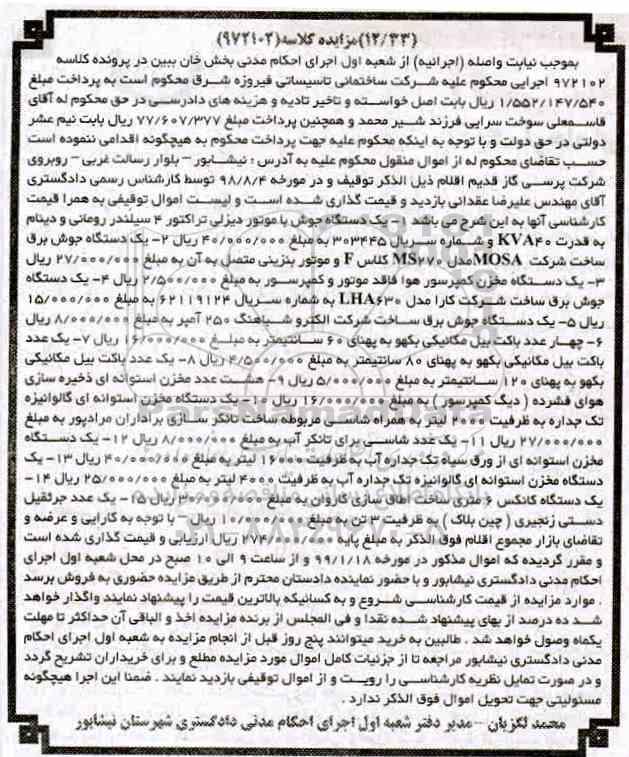 (۱۲/۳۳)مزایده کلاسه(۹۷۲۱۰۲)
بموجب نیابت واصله (اجرائیه) از شعبه اول اجرای احکام مدنی بخش خان ببین در پرونده کلاسه
۹۷۲۱۰۲ اجرایی محکوم علیه شرکت ساختمانی تاسیساتی فیروزه شرق محکوم است به پرداخت مبلغ
۱/۵۵۲/۱۴۷/۵۴۰ ریال بابت اصل خواسته و تاخیر تادیه و هزینه های دادرسی در حق محکوم له آقای
قاسمعلی سوخت سرایی فرزند شیر محمد و همچنین پرداخت مبلغ ۷۷/۶۰۷/۳۷۷ ریال بابت نیم عشر
دولتی در حق دولت و با توجه به اینکه محکوم علیه جهت پرداخت محکوم به هیچگونه اقدامی ننموده است
حسب تقاضای محکوم له از اموال منقول محکوم علیه به آدرس : نیشابور – بلوار رسالت غربی – روبروی
شرکت پرسی گاز قدیم اقلام ذیل الذکر توقیف و در مورخه ۹۸/۸/۴ توسط کارشناس رسمی دادگستری
آقای مهندس علیرضا عقدائی بازدید و قیمت گذاری شده است و لیست اموال توقیفی به همرا قیمت
کارشناسی آنها به این شرح می باشد ۱- یک دستگاه جوش با موتور دیزلی تراکتور ۴ سیلندر رومانی و دینام
به قدرت KVA۴۰ و شماره سریال ۳۰۳۴۴۵ به مبلغ ۴۰/۰۰۰/۰۰۰ ریال ۲- یک دستگاه جوش برق
ساخت شرکت MOSAمدل MS۲۷۰ کلاس F و موتور بنزینی متصل به آن به مبلغ ۲۷/۰۰۰/۰۰۰ ریال
۳- یک دستگاه مخزن کمپرسور هوا فاقد موتور و کمپرسور به مبلغ ۲/۵۰۰/۰۰۰ ریال ۴- یک دستگاه
جوش برق ساخت شرکت کارا مدل LHA۶۳۰ به شماره سریال ۶۲۱۱۹۱۲۴ به مبلغ ۱۵/۰۰۰/۰۰۰
ریال ۵- یک دستگاه جوش برق ساخت شرکت الکترو شباهنگ ۲۵۰ آمپر به مبلغ ۸/۰۰۰/۰۰۰ ریال
۶- چهار عدد باکت بیل مکانیکی بکهو به پهنای ۶۰ سانتیمتر به مبلغ ۱۶/۰۰۰/۰۰۰ ریال ۷- یک عدد
باکت بیل مکانیکی بکهو به پهنای ۸۰ سانتیمتر به مبلغ ۴/۵۰۰/۰۰۰ ریال ۸- یک عدد باکت بیل مکانیکی
بکهو به پهنای ۱۲۰ سانتیمتر به مبلغ ۵/۰۰۰/۰۰۰ ریال ۹- هشت عدد مخزن استوانه ای ذخیره سازی
هوای فشرده ( دیگ کمپرسور ) به مبلغ ۱۶/۰۰۰/۰۰۰ ریال ۱۰- یک دستگاه مخزن استوانه ای گالوانیزه
تک جداره به ظرفیت ۲۰۰۰ لیتر به همراه شاسی مربوطه ساخت تانکر سازی براداران مرادپور به مبلغ
۲۷/۰۰۰/۰۰۰ ریال ۱۱- یک عدد شاسی برای تانکر آب به مبلغ ۸/۰۰۰/۰۰۰ ریال ۱۲- یک دستگاه
مخزن استوانه ای از ورق سیاه تک جداره آب به ظرفیت ۱۶۰۰۰ لیتر به مبلغ ۴۰/۰۰۰/۰۰۰ ریال ۱۳- یک
دستگاه مخزن استوانه ای گالوانیزه تک جداره آب به ظرفیت ۴۰۰۰ لیتر به مبلغ ۲۵/۰۰۰/۰۰۰ ریال ۱۴-
یک دستگاه کانکس ۶ متری ساخت اطاق سازی کاروان به مبلغ ۳۰/۰۰۰/۰۰۰ ریال ۱۵- یک عدد جرثقیل
دستی زنجیری ( چین بلاک ) به ظرفیت ۳ تن به مبلغ ۱۰/۰۰۰/۰۰۰ ریال – با توجه به کارایی و عرضه و
تقاضای بازار مجموع اقلام فوق الذکر به مبلغ پایه ۲۷۴/۰۰۰/۰۰۰ ریال ارزیابی و قیمت گذاری شده است
و مقرر گردیده که اموال مذکور در مورخه ۹۹/۱/۱۸ و از ساعت ۹ الی ۱۰ صبح در محل شعبه اول اجرای
احکام مدنی دادگستری نیشابور و با حضور نماینده دادستان محترم از طریق مزایده حضوری به فروش برسد
. موارد مزایده از قیمت کارشناسی شروع و به کسانیکه بالاترین قیمت را پیشنهاد نمایند واگذار خواهد
شد ده درصد از بهای پیشنهاد شده نقدا و فی المجلس از برنده مزایده اخذ و الباقی آن حداکثر تا مهلت
یکماه وصول خواهد شد . طالبین به خرید میتوانند پنج روز قبل از انجام مزایده به شعبه اول اجرای احکام
مدنی دادگستری نیشابور مراجعه تا از جزئیات کامل اموال مورد مزایده مطلع و برای خریداران تشریح گردد
و در صورت تمایل نظریه کارشناسی را رویت و از اموال توقیفی بازدید نمایند . ضمنا این اجرا هیچگونه
مسئولیتی جهت تحویل اموال فوق الذکر ندارد .
محمد لگزیان – مدیر دفتر شعبه اول اجرای احکام مدنی دادگستری شهرستان نیشابور